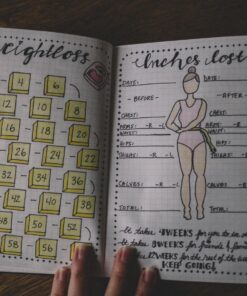 eightloss
4 6
12 10 8
14 16
28 26 24 22
30 32 34
42 40 38
44 46 48
52 50
58 56
Inches lost
DATE: DATE:
-BEFORE- -AFTER-
CHEST: CHEST:
ARMS: -R -L ARMS: -R -L
WAIST: WAIST:
HIPS: HIPS:
THIGHS: -R -L THIGHS: -R -L
CALVES: -R -L CALVES: -R -L
TOTAL: TOTAL:
it takes 4 WEEKS for you to
it takes 8 WEEKS for friends &
12 WEEKS for the rest of the
KEEP GOING!